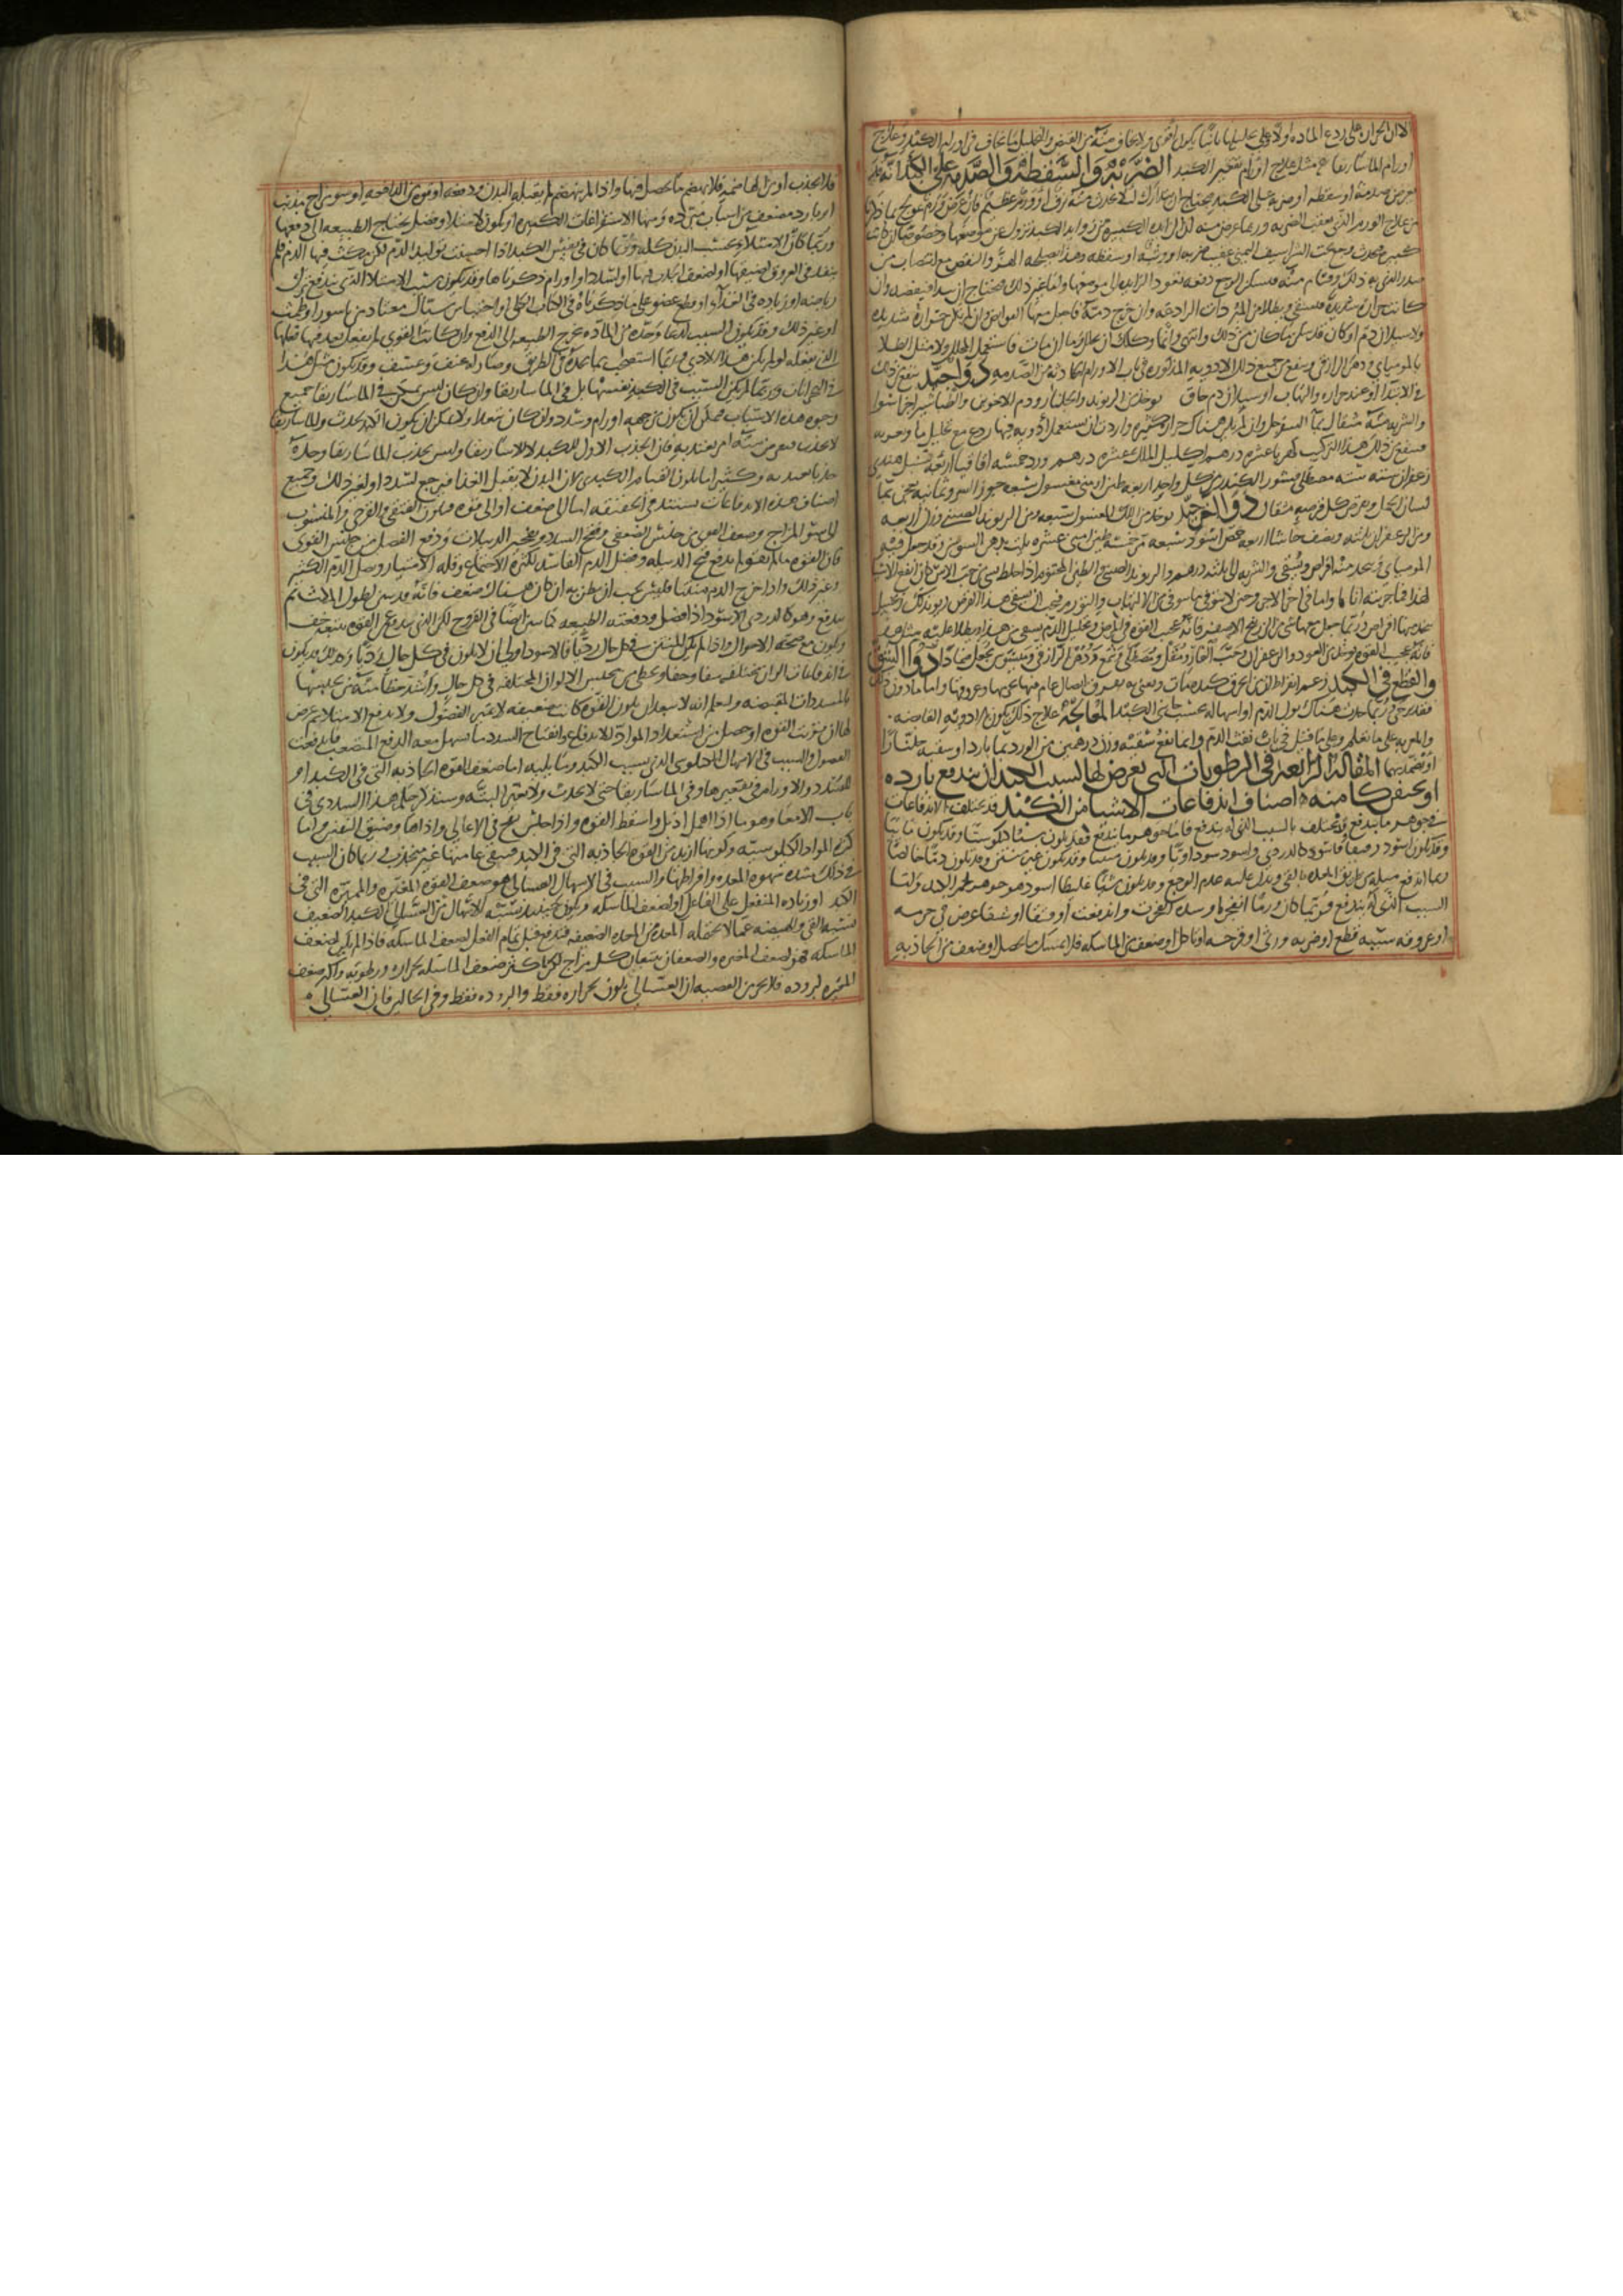 الا ان الحرارة على ردع المادة اولا وعلى تحليلها ثانيا يكون اقوى ولا يخاف منه من القبض والتحليل ما يخاف في اورام الكبد وعلاج
اورام الماساريقا هو مثل علاج اورام تقعير الكبد الضربة والسقطة والصدمة على الكبد انه قد
يعرض صدمة او سقطة او ضربة على الكبد فيحتاج ان يتدارك لئلا يحدث منه نزف او ورم عظيم فان عرض ورم عولج بما ذكرنا
من علاج الورم الذي يعقب الضربة وربما عرض منه ان الزائدة الكبيرة من زوائد الكبد تزول عن موضعها وخصوصا ان كانت
كبيرة فيحدث وجع تحت الشراسيف اليمنى عقيب ضربة او وثبة او سقطة وهذا يصلحه الهز والنفض مع انتصاب من
صدر الذي به ذلك وقيام منه فيسكن الوجع دفعة بعود الزائدة الى موضعها واما غير ذلك فيحتاج ان يبدا فيفصد وان
كانت حرارة شديدة فيسقى ويطلا من المبردات الرادعة وان خرج دم فاجعل معها القوابض وان لم يكن حرارة شديدة
ولا سيلان دم او كان قد سكن ما كان من ذلك وانتهى
بالمومياي ودهن الرازقي وينفع من جميع ذلك الادوية المذكورة في باب الاورام الحادثة من الصدمة دواء جيد ينفع من ذلك
في الابتدا او عند حرارة والتهاب او سيلان دم يوخذ من الريوند والجلنار ودم الاخوين والطباشير اجزا سوا
والشربة منه مثقال بماء السفرجل وان لم يكن هناك حرارة كثيرة واردت ان تستعمل ادوية فيها ردع مع تحليل ما
فينفع من ذلك هذا التركيب كهربا عشرة دراهم اكليل الملك عشرة دراهم ورد خمسة اقاقيا اربعة سنبل هندي
زعفران ستة ستة مصطكى قشور الكندر من كل واحد اربعة طين ارمني مغسول سبعة جوز السرو ثمانية يعجن بماء
لسان الحمل ويقرص كل قرصة مثقال دواء اخر جيد يوخذ من اللك المغسول سبعة ومن الريوند الصيني وزن اربعة
ومن الزعفران ثلثة ونصف
المومياي يتخذ منه اقراص ويسقى والشربة الى ثلثة دراهم والريوند الصيني والطين المختوم اذا خلط بشي من حب الاس كان انفع الاشيا
لهذا فيما جربته انا
فانه عجيب القوة
والقطع في الكبد زعم ابقراط ان من انخرق كبده مات ويعني به تفرق اتصال عام فيها
فقد يرجى وربما حدث هناك بول الدم او اسهاله بحسب جانبي الكبد المعالجة علاج ذلك يكون بالادوية القابضة
والمغرية على ما تعلم وعلى ما قيل في باب نفث الدم وانما نفع سقيه وزن درهمين من الورد بماء بارد او سقيه جلنارا
او يضمد بهما المقالة الرابعة في الرطوبات التي تعرض لها بسبب الكبد ان يندفع بارزة
او يحتقن كامنة اصناف اندفاعات الاشيا من الكبد قد يختلف الاندفاعات
في جوهر ما يندفع وقد يختلف بالسبب الذي له يندفع فاما جوهر ما يندفع فقد يكون شيئا كيلوسيا وقد يكون مائيا
وقد يكون اسود رقيقا واسود كالدردي واسود سوداويا وقد يكون منتنا وقد يكون غير منتن وقد يكون دما خالصا
ربما اندفع مثله من طريق المعدة بالقي ويدل عليه عدم الوجع وقد يكون شيئا غليظا اسود هو جوهر لحم الكبد واما
السبب الذي له يندفع فربما كان ورما انفجر او سددا انفتحت وانبزغت او فتقا او شقا عرض في جرمه
او عروقه سببه قطع او ضربة او وثي او قرحة او تاكل او ضعف من الماسكة فلا يمسك ما يحصل او ضعف من الجاذبة
فلا يجذب او من الهاضمة فلا يهضم ما يحصل فيها واذا لم ينهضم لم يقبله البدن ودفعه او قوة من الدافعة او سو مزاج مذيب
او بارد مضعف من اسباب مبردة ومنها الاستفراغات الكثيرة او يكون لامتلا وفضل تحتاج الطبيعة الى دفعها
وربما كان الامتلاء بحسب البدن كله وربما كان في نفس الكبد اذا احسنت توليد الدم لكن يكثف فيها الدم فلم
ينفذ في العروق لضيقها او لضعف الجذب فيها او لسدد او اورام ذكرناها وقد يكون سبب الامتلا الذي يندفع ترك
رياضة او زيادة في الغذاء او قطع عضو على ما ذكرناه في الكتاب الكلي او احتباس سيال معتاد من باسور او طمث
او غير ذلك وقد يكون السبب لذعا وحدة من المادة تحوج الطبيعة الى الدفع وان كانت القوى لم ينفعل بعد فيها فعلها
الذي يفعله لو لم يكن هذا الاذى وربما استصحب ما يجده في الطريق وصار له عنف وعسف وقد يكون مثل هذا
في البحرانات وربما لم يكن السبب في الكبد نفسها بل في الماساريقا وان كان ليس يمكن في الماساريقا جميع
وجوه هذه الاسباب فيمكن ان يكون من جهة اورام وسدد
لا يجذب فيعرض منه امر يعتد به فان الجذب الاول للكبد لا للماساريقا وليس يجذب الماساريقا وحده
جذبا يعتد به وكثيرا ما يكون القيام الكبدي لان البدن لا يقبل الغذا فيرجع لسدد او لغير ذلك وجميع
اصناف هذه الاندفاعات يستند في الحقيقة اما الى ضعف او الى قوة فيكون الفتقي والقرحي والمنسوب
الى سو المزاج وضعف القوى من جنس الضعفي وفتح السدد وتفجير الدبيلات ودفع الفضل من جنس القوى
فان القوة ما لم تقو لم تدفع قيح الدبيلة وفضل الدم الفاسد لكثرة الاجتماع وقلة الامتيار وفضل الدم الكثير
وغير ذلك واذا خرج الدم منتنا فليس يجب ان يظن به ان كان هناك ضعف فانه قد ينتن لطول المكث ثم
يندفع وهو كالدردي الاسود اذا فضل ودفعته الطبيعة كما ينتن ايضا في القروح لكن الذي يندفع عن القوة يتبعه خف
ويكون مع صحة الاحوال واذا لم يكن المنتن في كل حال رديا فالاسود اولى ان لا يكون في كل حال رديا
في اندفاعات الوان مختلفة شفا وخفا ويخطى من يحبس الالوان المختلفة في كل حال واشد خطا منه من يحبسها
بالمسددات المقبضة واعلم انه لا يبعد ان يكون القوة كانت ضعيفة لا تميز الفضول ولا تدفع الامتلا ثم عرض
لها ان قويت القوة او حصل من استعداد المواد للاندفاع وانفتاح السدد ما سهل معه الدفع المتصعب فاندفعت
الفضول والسبب في الاسهال الكيلوسي الذي بسبب الكبد وما يليه اما ضعف القوة الجاذبة التي في الكبد او
للسدد والاورام في تقعيرها وفي الماساريقا حتى لا يجذب ولا يغير البتة وسنذكر حكم هذا السددي في
باب الامعا وهو مما اذا امهل اذبل واسقط القوة واذا حبس نفخ في الاعالي واذاها وضيق النفس واما
كثرة المواد الكيلوسية وكونها ازيد من القوة الجاذبة التي في الكبد فيبقى عامتها غير منجذب وربما كان السبب
في ذلك شدة شهوة المعدة وافراطها والسبب في الاسهال الغسالي هو ضعف القوة المغيرة والمميزة التي في
الكبد او زيادة المنفعل على الفاعل او لضعف الماسكة ويكون حينئذ نسبة الاسهال الغسالي الى الكبد الضعيف
نسبة القي والهيضة عما لا تحتمله المعدة من المعدة الضعيفة فيندفع قبل تمام الفعل لضعف الماسكة فاذا لم يكن لضعف
الماسكة فهو لضعف المغيرة والضعفان يتبعان كل مزاج لكن اكثر ضعف الماسكة لحرارة ورطوبة واكثر ضعف
المغيرة لبرودة فلا يخرج من القضية ان الغسالي يكون لحرارة فقط والبرودة فقط وفي الحالين فان الغسالي